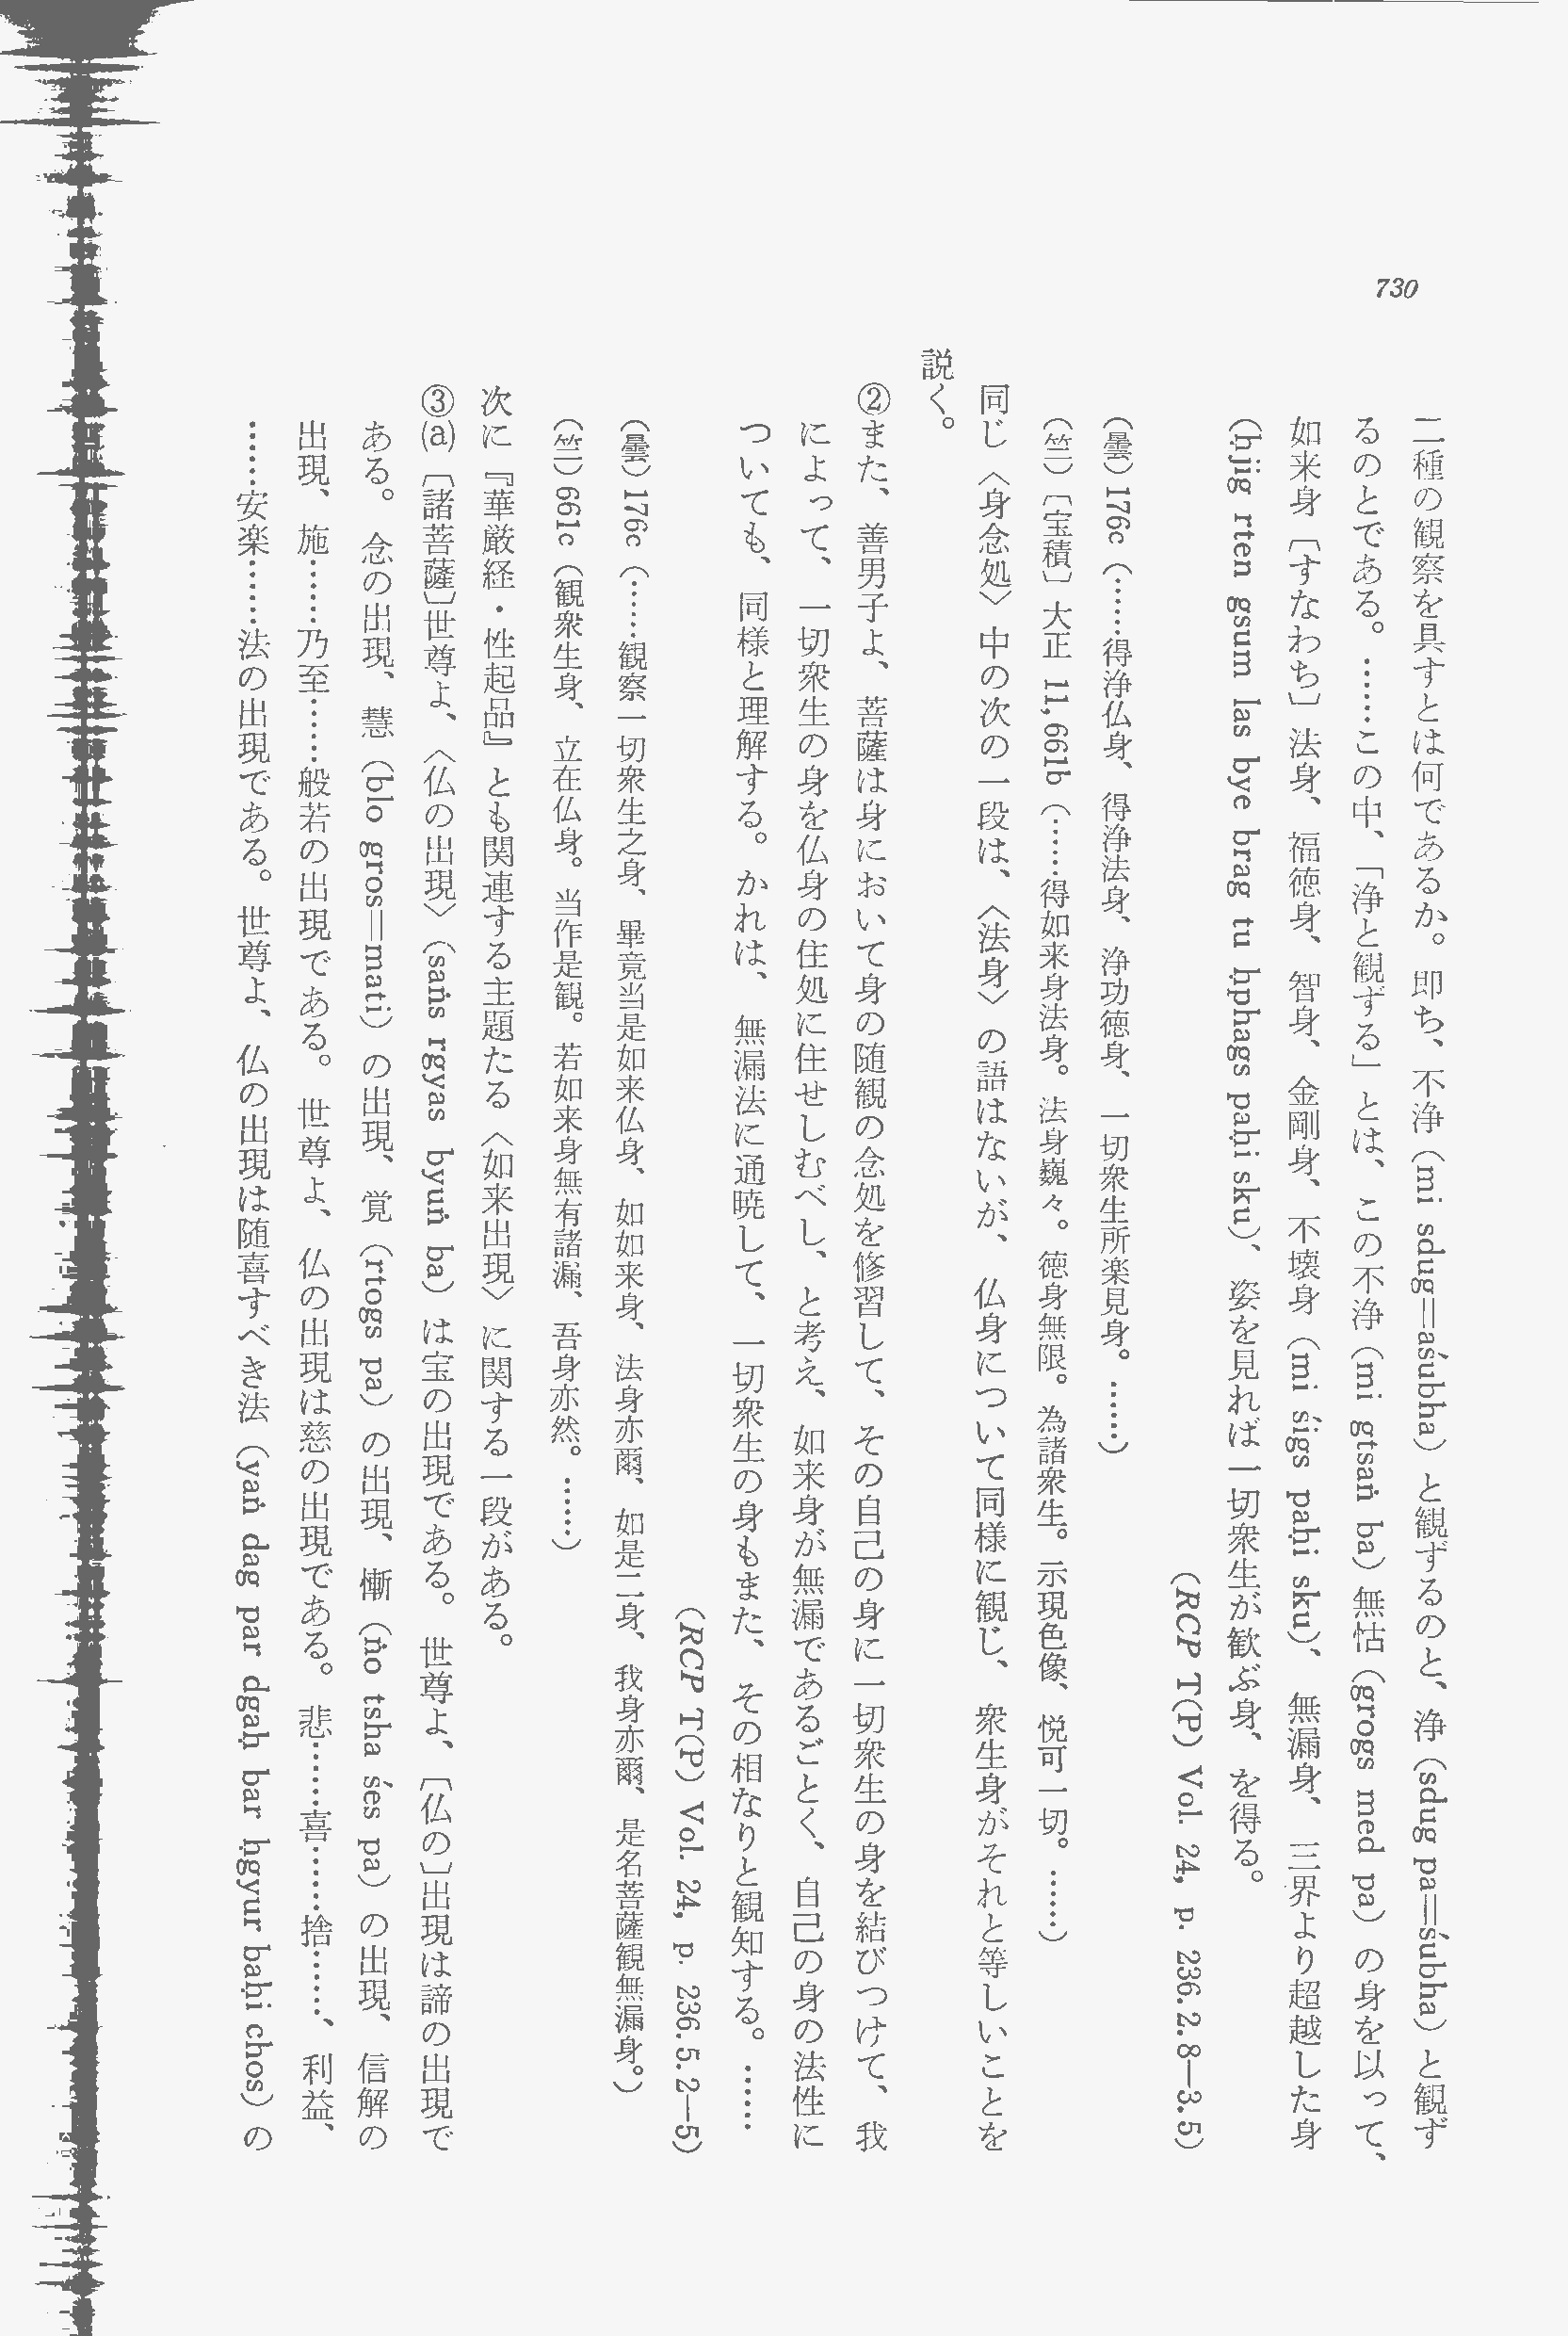 730
二種の観察を具すとは何であるか。即ち、不浄（mi sdug=aśubha）と観ずるのと、浄（sdug pa=śubha）と観ず
るのとである。……この中、「浄と観ずる」とは、この不浄（mi gtsaṅ ba）無怙（grogs med pa）の身を以って、
如来身［すなわち］法身、福徳身、智身、金剛身、不壊身（mi śigs paḥi sku）、無漏身、三界より超越した身
（ḥjig rten gsum las bye brag tu ḥphags paḥi sku）、姿を見れば一切衆生が歓ぶ身、を得る。
（RCP T(P) Vol. 24, p. 236.2.8—3.5）
（曇）176c（……得浄仏身、得浄法身、浄功徳身、一切衆生所楽見身。……）
（竺）［宝積］大正 11, 661b（……得如来身法身。法身巍々。徳身無限。為諸衆生。示現色像、悦可一切。……）
同じ〈身念処〉中の次の一段は、〈法身〉の語はないが、仏身について同様に観じ、衆生身がそれと等しいことを
説く。
②また、善男子よ、菩薩は身において身の随観の念処を修習して、その自己の身に一切衆生の身を結びつけて、我
によって、一切衆生の身を仏身の住処に住せしむべし、と考え、如来身が無漏であるごとく、自己の身の法性に
ついても、同様と理解する。かれは、無漏法に通暁して、一切衆生の身もまた、その相なりと観知する。……
（RCP T(P) Vol. 24, p. 236.5.2—5）
（曇）176c（……観察一切衆生之身、畢竟当是如来仏身、如如来身、法身亦爾、如是二身、我身亦爾、是名菩薩観無漏身。）
（竺）661c（観衆生身、立在仏身。当作是観。若如来身無有諸漏、吾身亦然。……）
次に『華厳経・性起品』とも関連する主題たる〈如来出現〉に関する一段がある。
③(a)［諸菩薩］世尊よ、〈仏の出現〉（saṅs rgyas byuṅ ba）は宝の出現である。世尊よ、［仏の］出現は諦の出現で
ある。念の出現、慧（blo gros=mati）の出現、覚（rtogs pa）の出現、慚（ṅo tsha śes pa）の出現、信解の
出現、施……乃至……般若の出現である。世尊よ、仏の出現は慈の出現である。悲……喜……捨……、利益、
……安楽……法の出現である。世尊よ、仏の出現は随喜すべき法（yaṅ dag par dgaḥ bar ḥgyur baḥi chos）の